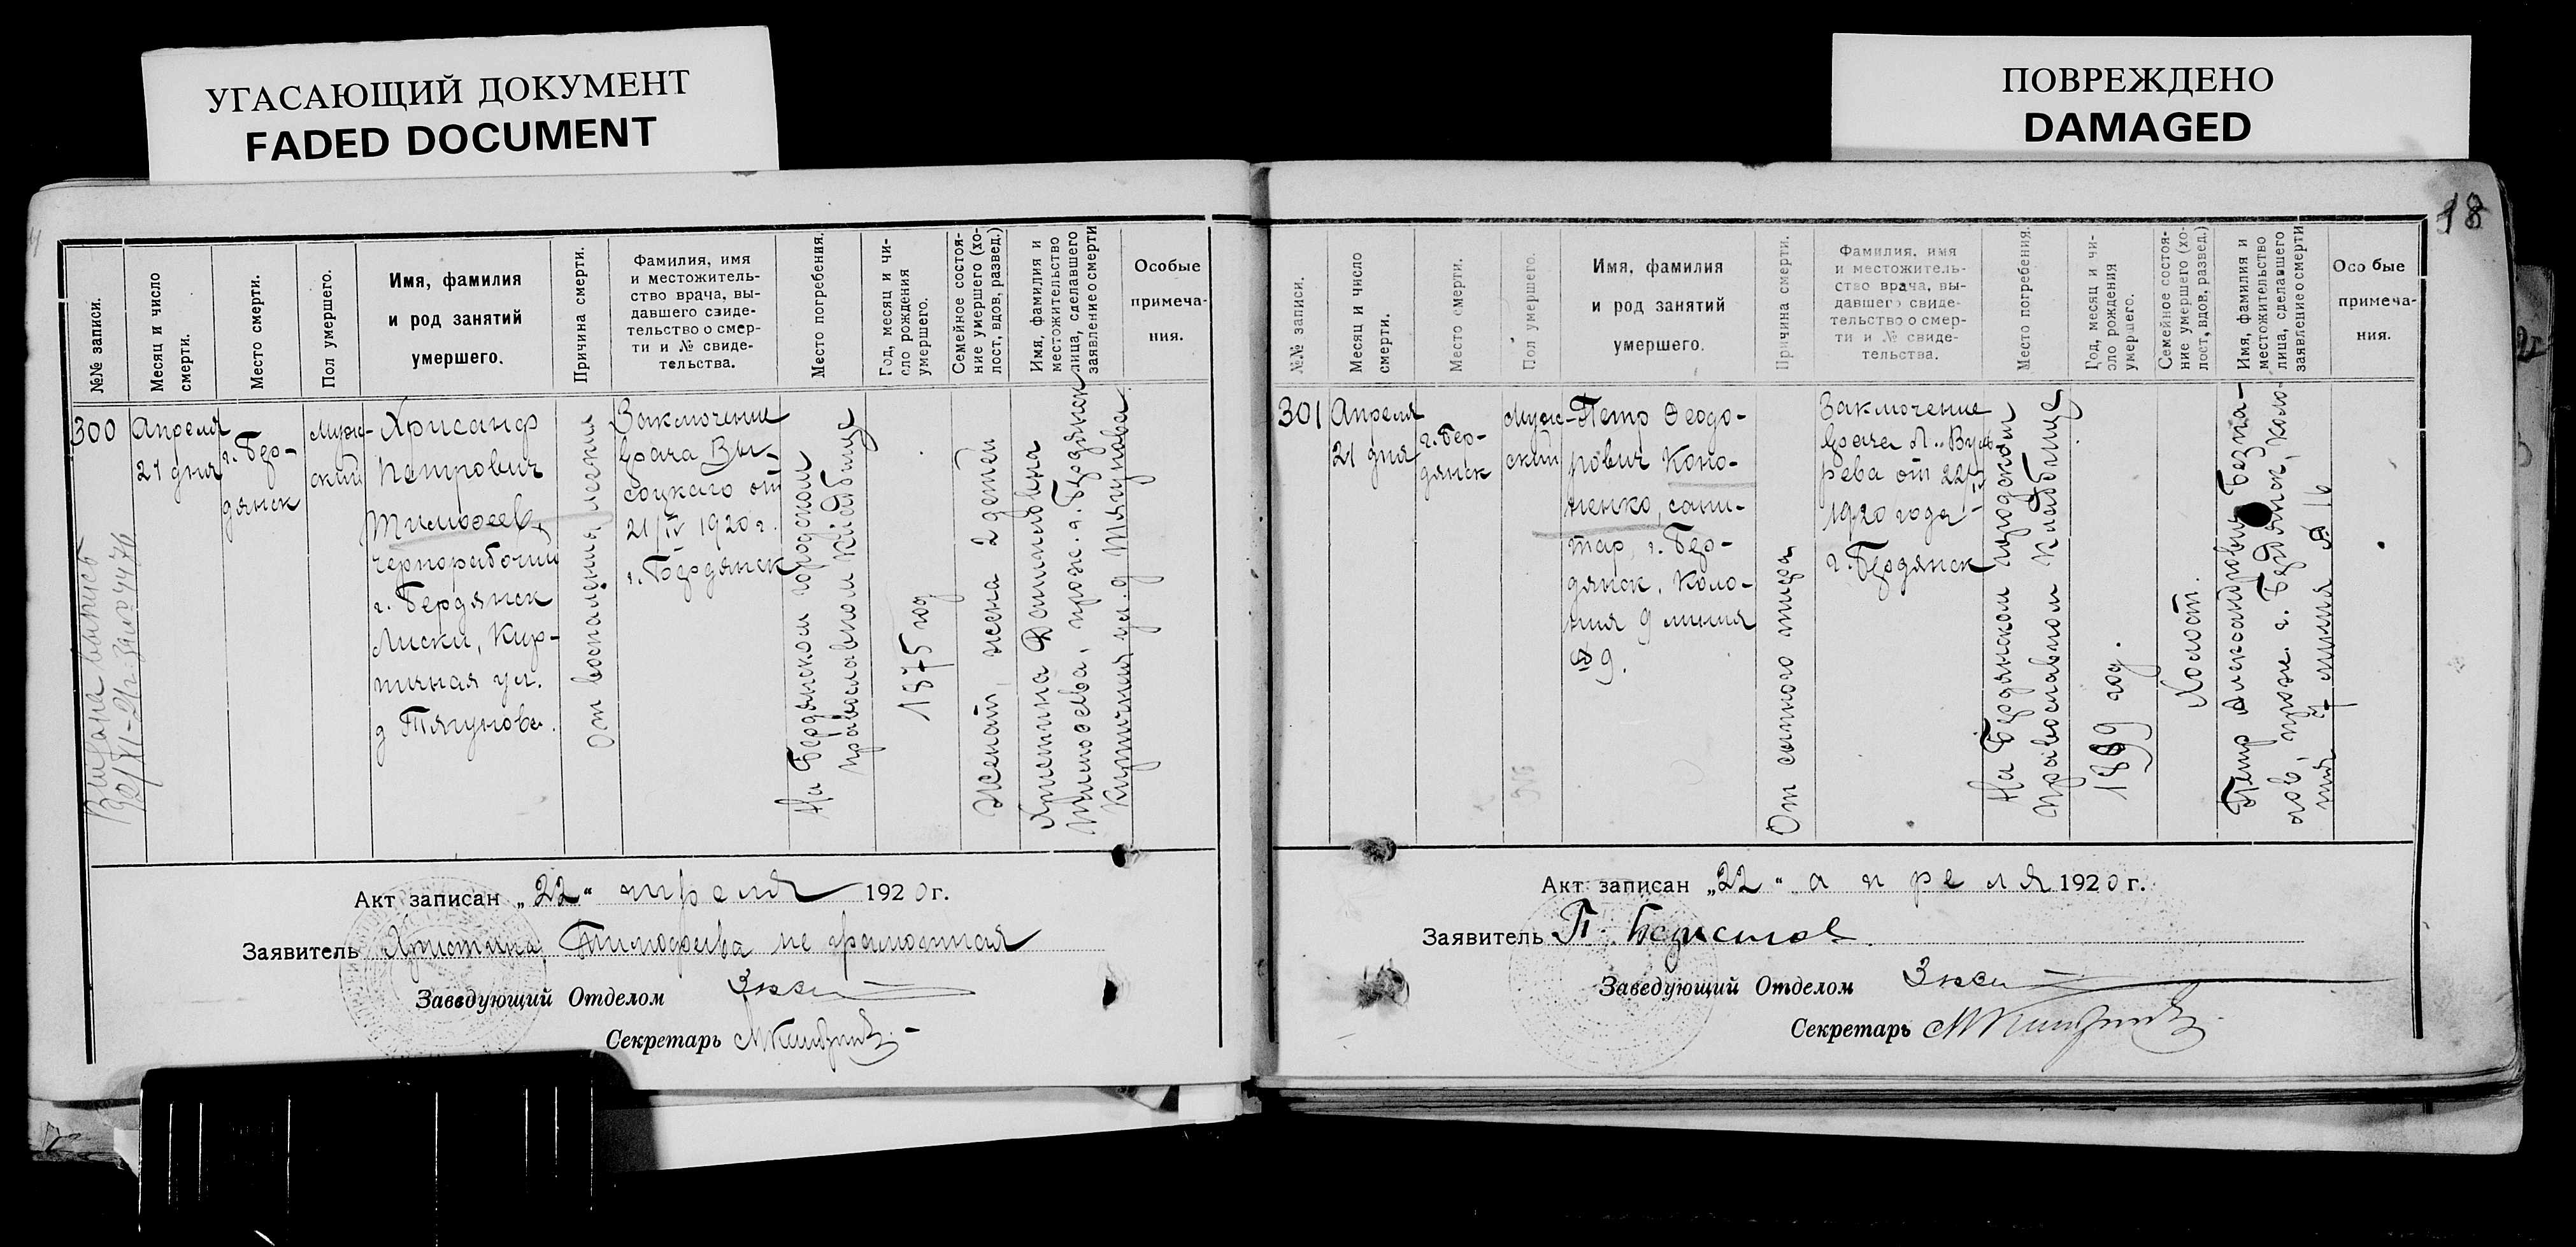 УГАСАЮЩИЙ ДОКУМЕНТ
FADED DOCUMENT
ПОВРЕЖДЕНО
DAMAGED
18
№№ записи.
Месяц и число
смерти.
Место смерти.
Пол умершего.
Имя, фамилия
и род занятий
умершего.
Причина смерти.
Фамилия, имя
и местожитель-
ство врача, вы-
давшего свиде-
тельство о смер-
ти и № свиде-
тельства.
Место погребения.
Год, месяц и чи-
сло рождения
умершего.
Семейное состоя-
ние умершего (хо-
лост, вдов, развед.)
Имя, фамилия и
местожительство
лица, сделавшего
заявление о смерти
Особые
примеча-
ния.
300
Апреля
21 дня
г. Бер-
дянск
Муж-
ский
Хрисанф
Петрович
Тимофеев,
чернорабочий
г. Бердянск
Лиски, Кир-
пичная ул.
д Тягунова.
От воспаления легких
Заключение
врача Вы-
соцкаго от
21/IV 1920 г.
г. Бердянск
На Бердянском городском
православном кладбище
1875 год
Женат, жена 2 детей
Христина Даниловна
Тимофеева, прож. г. Бердянск
Кирпичная ул. д Тягунова.
Выдана выпись
Акт записан „22“ апреля 1920 г.
Заявитель Христина Тимофеева не грамотная
Заведующий Отделом
Секретарь
№№ записи.
Месяц и число
смерти.
Место смерти.
Пол умершего.
Имя, фамилия
и род занятий
умершего.
Причина смерти.
Фамилия, имя
и местожитель-
ство врача, вы-
давшего свиде-
тельство о смер-
ти и № свиде-
тельства.
Место погребения.
Год, месяц и чи-
сло рождения
умершего.
Семейное состоя-
ние умершего (хо-
лост, вдов, развед.)
Имя, фамилия и
местожительство
лица, сделавшего
заявление о смерти
Особые
примеча-
ния.
301
Апреля
21 дня
г. Бер-
дянск
Муж-
ский
Петр Феодо-
рович Коно-
ненко, сани-
тар, г. Бер-
дянск. Коло-
ния 9 линия
№ 9.
От сыпного тифа
Заключение
врача
от 22/IV
1920 года
г. Бердянск
На Бердянском городском
православном кладбище
1899 год.
Холост.
Петр Александрович
прож. г. Бердянск, Коло-
ния линия № 16
Акт записан „22“ апреля 1920 г.
Заявитель П.
Заведующий Отделом
Секретарь